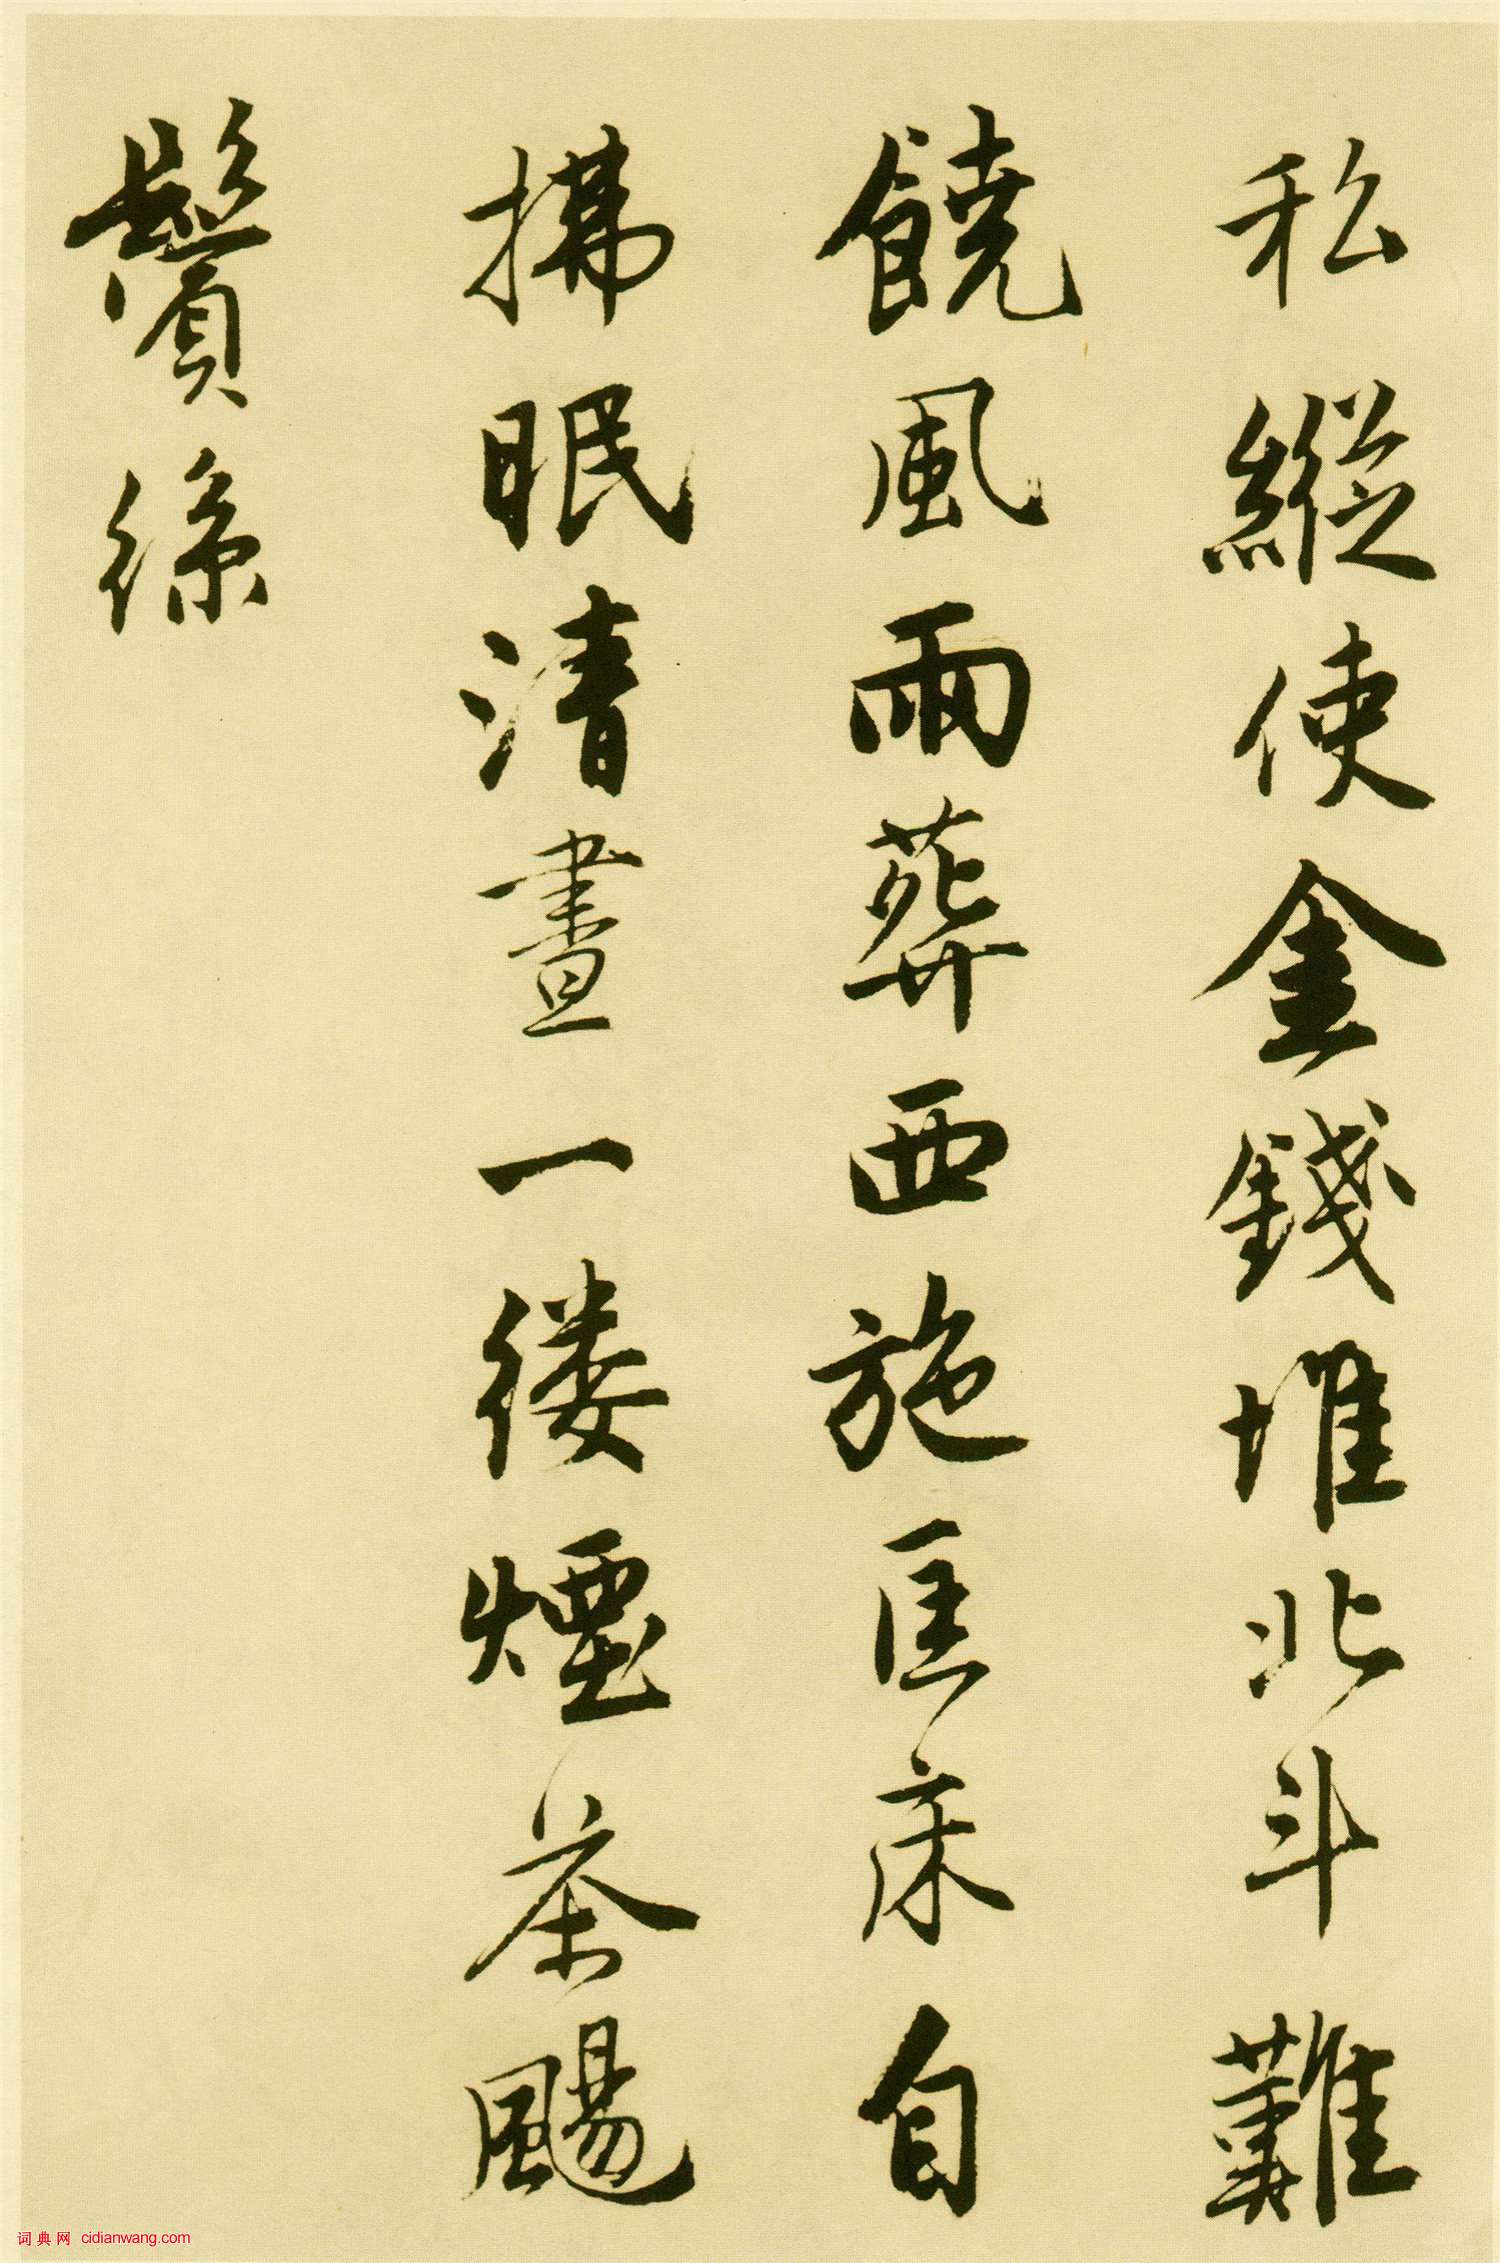 私縱使金錢堆北斗難
饒風雨葬西施匡床自
拂眠清晝一縷煙茶颺
鬢絲
词典网 cidianwang.com